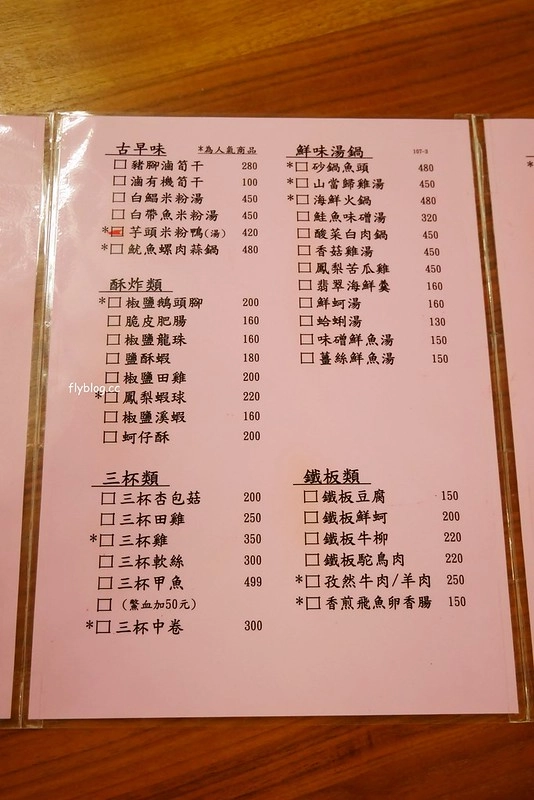 古早味 *為人氣商品
□豬腳滷筍干 280
□滷有機筍干 100
□白鯧米粉湯 450
□白帶魚米粉湯 450
*□芋頭米粉鴨(湯) 420
*□魷魚螺肉蒜鍋 480
酥炸類
*□椒鹽鵝頭腳 200
□脆皮肥腸 160
□椒鹽龍珠 160
□鹽酥蝦 180
□椒鹽田雞 200
flyblog.cc
*□鳳梨蝦球 220
□椒鹽溪蝦 160
□蚵仔酥 200
三杯類
□三杯杏包菇 200
□三杯田雞 250
*□三杯雞 350
□三杯軟絲 300
□三杯甲魚 499
□(鱉血加50元)
*□三杯中卷 300
鮮味湯鍋 107-3
*□砂鍋魚頭 480
*□山當歸雞湯 450
*□海鮮火鍋 480
□鮭魚味磳湯 320
□酸菜白肉鍋 450
□香菇雞湯 450
□鳳梨苦瓜雞 450
□翡翠海鮮羹 160
□鮮蚵湯 160
□蛤蜊湯 130
□味磳鮮魚湯 150
□薑絲鮮魚湯 150
鐵板類
□鐵板豆腐 150
□鐵板鮮蚵 200
□鐵板牛柳 220
□鐵板駝鳥肉 220
*□孜然牛肉/羊肉 250
*□香煎飛魚卵香腸 150